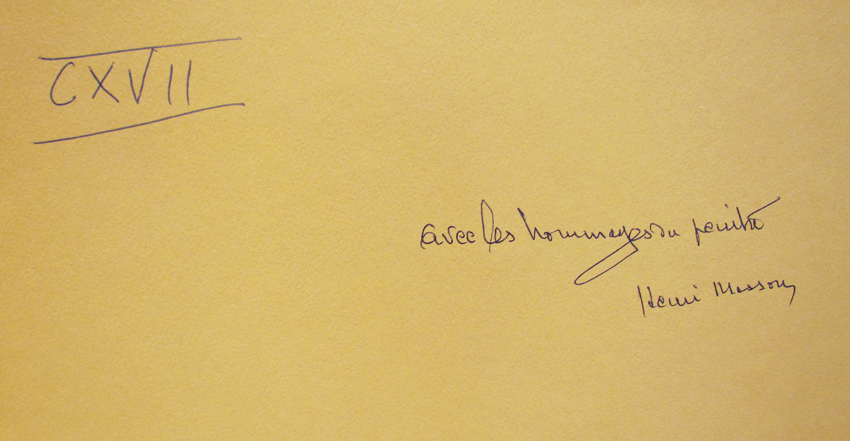 CXVII
avec les hommages du peintre
Henri Masson